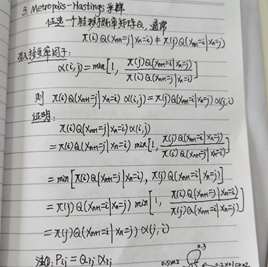 3. Metropolis-Hastings 采样
任选一个转移概率矩阵Q, 通常
π(i) Q(Xn+1=j|Xn=i) ≠ π(j) Q(Xn+1=i|Xn=j)
引入接受率因子:
α(i,j) = min[1, π(j)Q(Xn+1=i|Xn=j) / π(i)Q(Xn+1=j|Xn=i)]
则 π(i) Q(Xn+1=j|Xn=i) α(i,j) = π(j) Q(Xn+1=i|Xn=j) α(j,i)
证明:
π(i) Q(Xn+1=j|Xn=i) α(i,j)
= π(i) Q(Xn+1=j|Xn=i) min[1, π(j)Q(Xn+1=i|Xn=j) / π(i)Q(Xn+1=j|Xn=i)]
= min[π(i) Q(Xn+1=j|Xn=i), π(j) Q(Xn+1=i|Xn=j)]
= π(j) Q(Xn+1=i|Xn=j) min[1, π(i)Q(Xn+1=j|Xn=i) / π(j)Q(Xn+1=i|Xn=j)]
= π(j) Q(Xn+1=i|Xn=j) α(j,i)
Pij = Qij αij
0.3